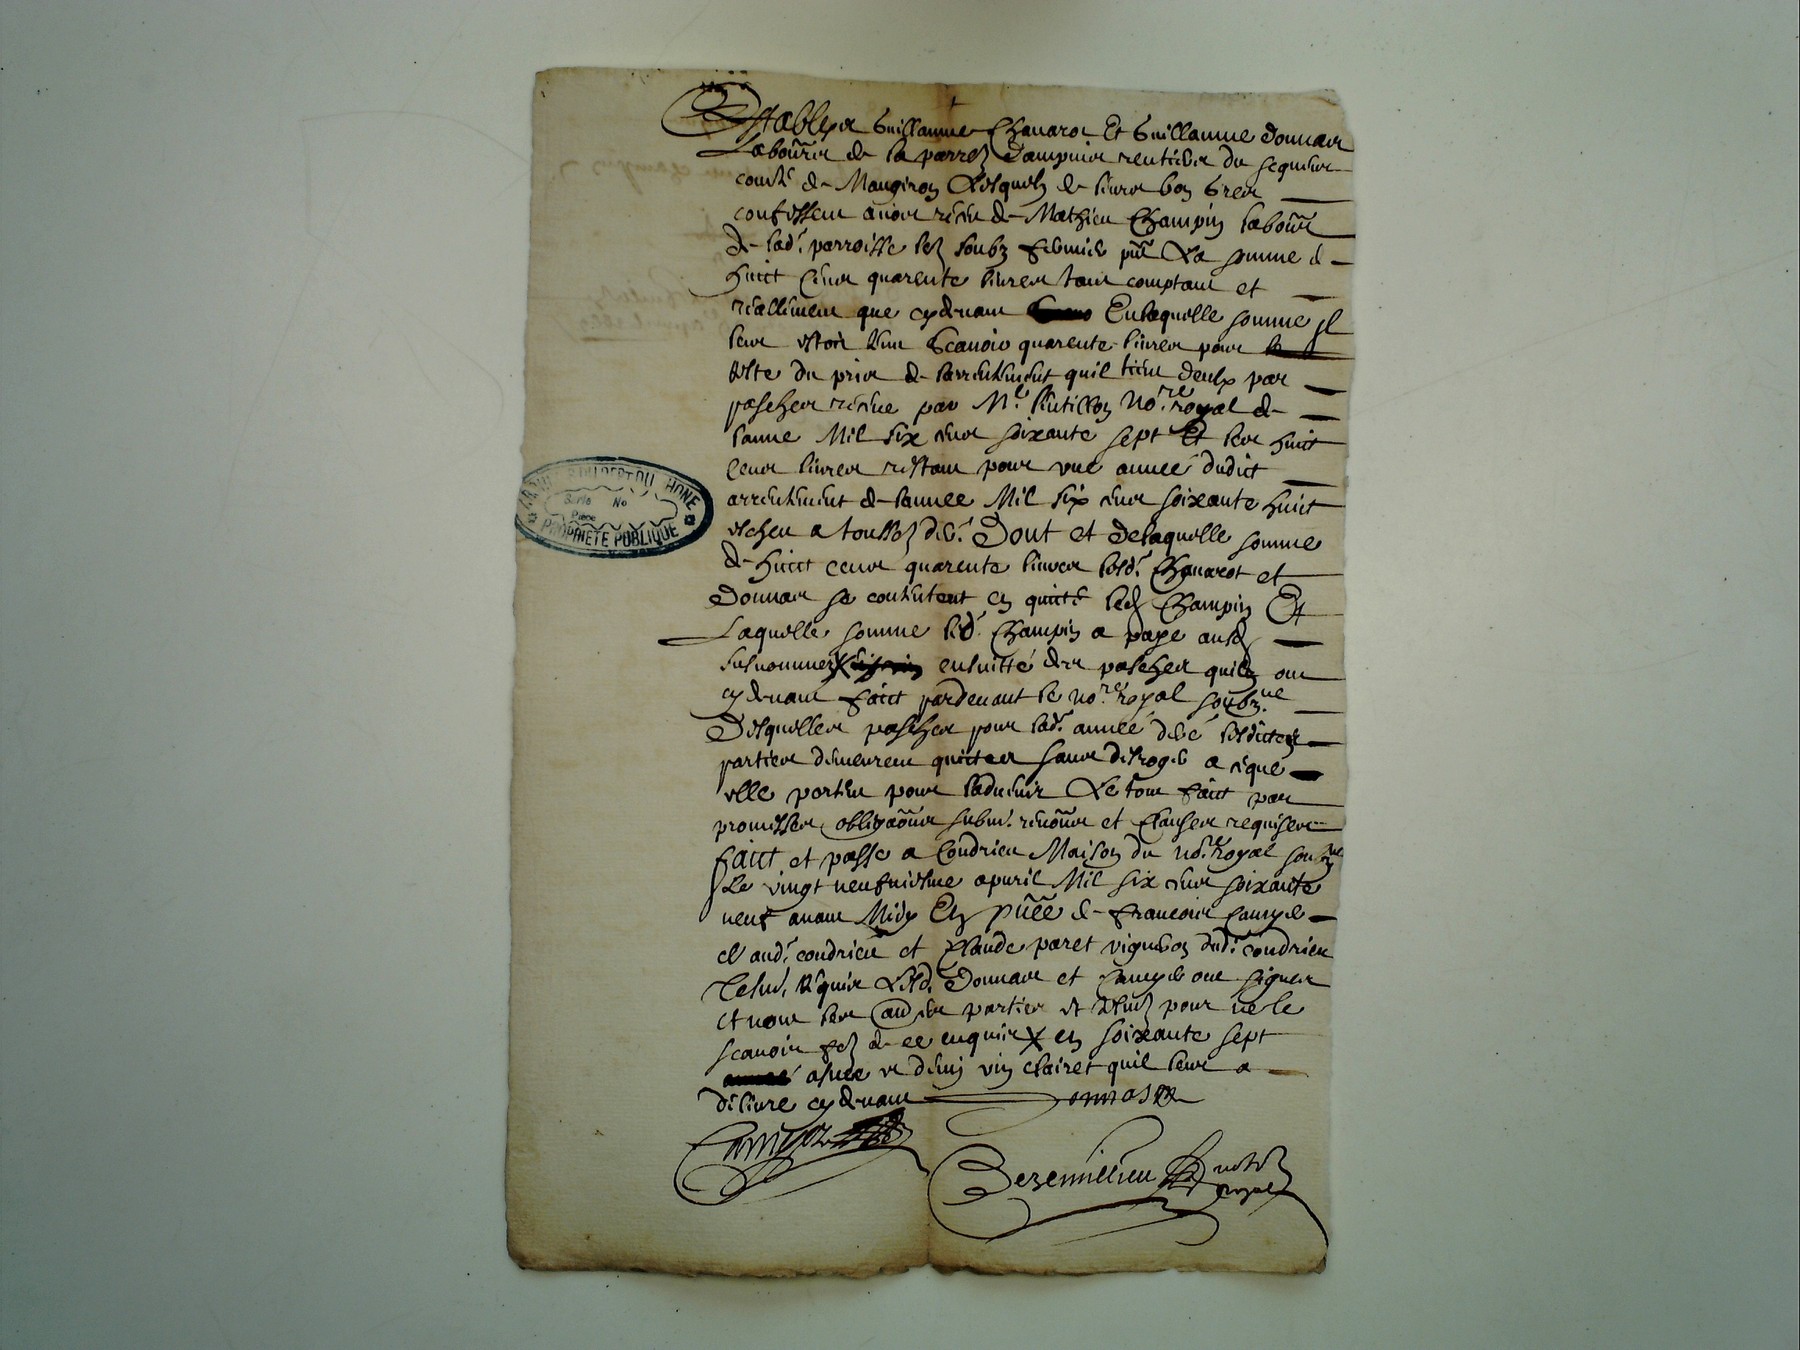 Establys Guillaume Chavaros Et Guillaume Donnas
Labour^rs de la parr^e Dampuis rentiers du seigneur
comte de Maugiron Lesquels de leurs bon gres
confessent avoir receu de Mathieu Champin labour
de lad. parroisse les soubz fermier pnt La somme de
huict cens quarente livres tant comptant et
reallement que cydevant En laquelle somme il
leur estoit tenu Scavoir quarente livres pour
reste du prix de larrentement quil tient deulx par
pasches receue par M^e No^re royal de
lanne Mil six cens soixante sept Et les huict
cens livres restant pour une annee dudict
arrentement de lannee Mil six cens soixante huict
escheu a toussts der. Dont et de laquelle somme
de huict cens quarente livres lesd. Chavarot et
Donnas se contentent en quitte led Champin Et
Laquelle somme led. Champin a paye ausd
susnommes X ensuitte des pasches quils ont
cydevant faict pardevant le no^re royal soubz^ne
Desquelles pasches pour lad. annee lesdictes
parties demeurent quictes sans desroger a icque
elle portent pour ladvenir Le tout faict par
promesses obligaons submi. renons et clauses requises
faict et passe a Condrieu Maison du no^re royal soubz^ne
Le vingt neufviesme apvril Mil six cens soixante
neuf avant Midy En pnce de francois
aud. condrieu et Claude paret vigneron dud. condrieu
Tesm. requis Lesd. Donnas et ont signes
et non les autres parties et tesm pour ne le
scavoir fe de ce enquis X en soixante sept
asnee et demy vin clairet quil leur a
delivre cydevant Donnas
Bezemillieu not^re
royal
ARCHIVES DU DEPT DU RHONE
Serie No
Piece
PROPRIETE PUBLIQUE